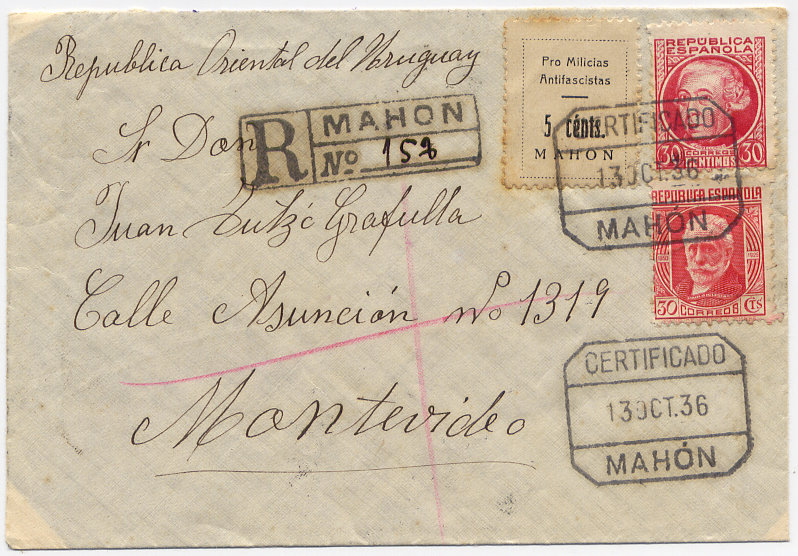 Republica Oriental del Uruguay
Sr Don
Juan Grafulla
Calle Asunción Nº 1319
Montevideo
R
MAHON
Nº 152
Pro Milicias
Antifascistas
5 cénts.
MAHON
REPÚBLICA
ESPAÑOLA
CORREOS
30 CENTIMOS 30
REPÚBLICA ESPAÑOLA
30 CORREOS CTS
CERTIFICADO
13 OCT. 36
MAHÓN
CERTIFICADO
13 OCT. 36
MAHÓN